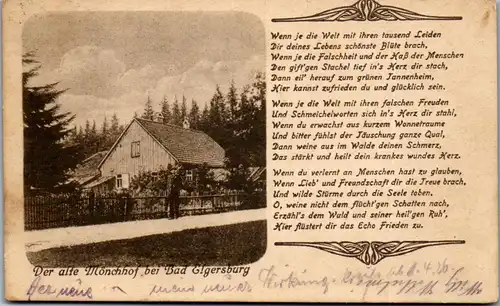 Wenn je die Welt mit ihren tausend Leiden
Dir deines Lebens schönste Blüte brach,
Wenn je die Falschheit und der Haß der Menschen
Den gift'gen Stachel tief in's Herz dir stach,
Dann eil' herauf zum grünen Tannenheim,
Hier kannst zufrieden du und glücklich sein.
Wenn je die Welt mit ihren falschen Freuden
Und Schmeichelworten sich in's Herz dir stahl,
Wenn du erwachst aus kurzem Wonnetraume
Und bitter fühlst der Täuschung ganze Qual,
Dann weine aus im Walde deinen Schmerz,
Das stärkt und heilt dein krankes wundes Herz.
Wenn du verlernt an Menschen hast zu glauben,
Wenn Lieb' und Freundschaft dir die Treue brach,
Und wilde Stürme durch die Seele toben.
O, weine nicht dem flücht'gen Schatten nach,
Erzähl's dem Wald und seiner heil'gen Ruh',
Hier flüstert dir das Echo Frieden zu.
Der alte Mönchhof bei Bad Elgersburg